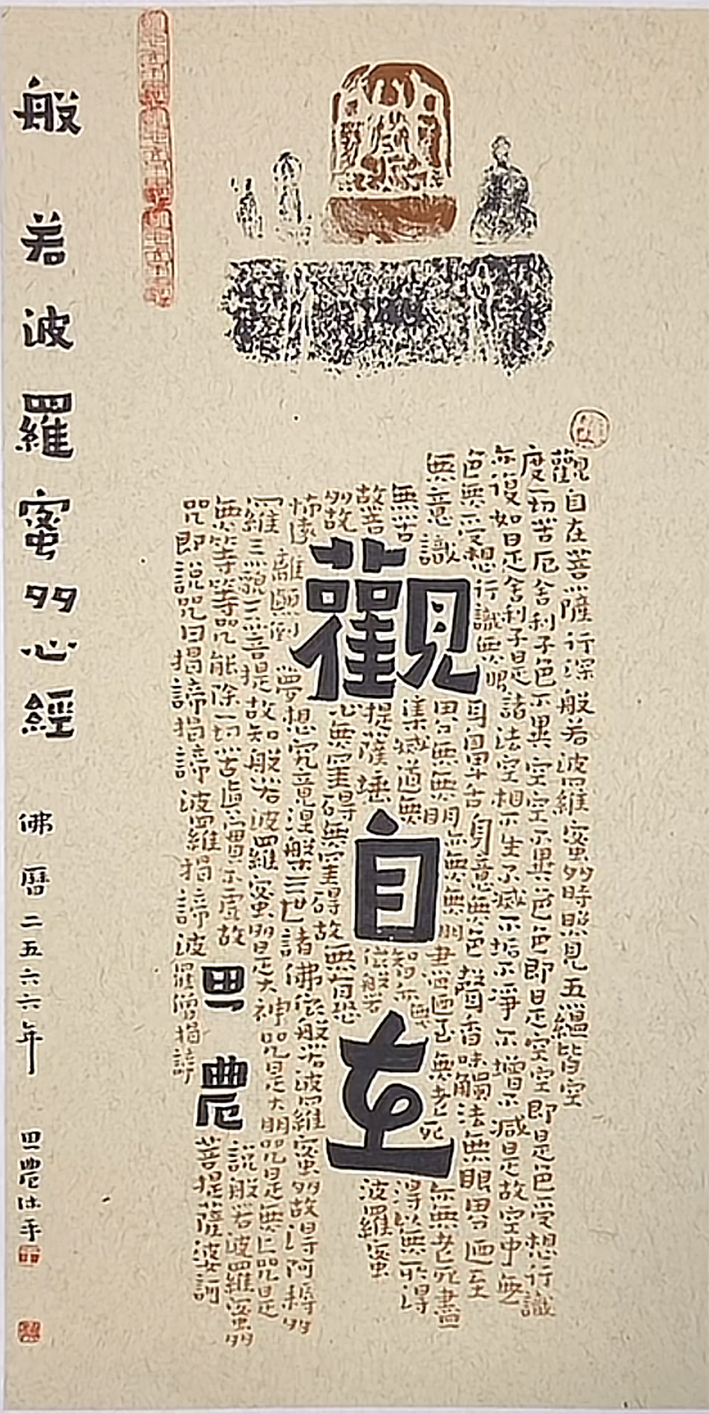 觀自在菩薩行深般若波羅蜜多時照見五蘊皆空
度一切苦厄舍利子色不異空空不異色色即是空空即是色受想行識
亦復如是舍利子是諸法空相不生不滅不垢不淨不增不減是故空中無
色無受想行識無眼耳鼻舌身意無色聲香味觸法無眼界迺至
無意識界無無明亦無無明盡迺至無老死亦無老死盡
無苦集滅道無智亦無得以無所得
故菩提薩埵依般若波羅蜜
多故心無罣礙無罣礙故無有恐
怖遠離顛倒夢想究竟涅槃三世諸佛依般若波羅蜜多故得阿耨多
羅三藐三菩提故知般若波羅蜜多是大神咒是大明咒是無上咒是
無等等咒能除一切苦真實不虛故說般若波羅蜜多
咒即說咒曰揭諦揭諦波羅揭諦波羅僧揭諦菩提薩婆訶
觀自在
田農
般若波羅蜜多心經 佛曆二五六六年 田農沐手